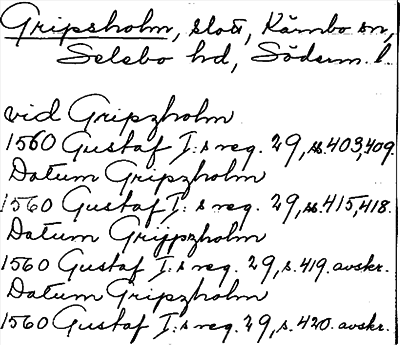 Gripsholm, slott, Kärnbo sn,
Selebo hd, Söderm. l.
vid Gripzholm
1560 Gustaf I:s reg. 29, ss. 403, 409.
Datum Gripzholm
1560 Gustaf I:s reg. 29, ss. 415, 418.
Datum Grijpzholm
1560 Gustaf I:s reg. 29, s. 419. avskr.
Datum Gripzholm
1560 Gustaf I:s reg. 29, s. 420. avskr.